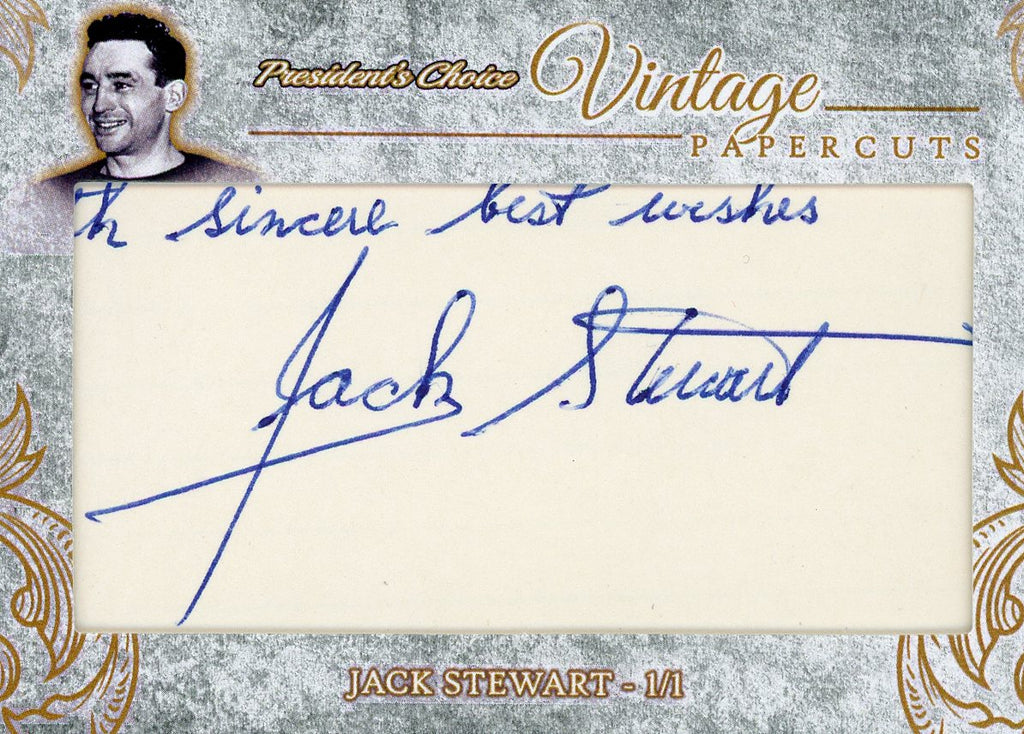 President's Choice Vintage
PAPERCUTS
th sincere best wishes
Jack Stewart
JACK STEWART - 1/1